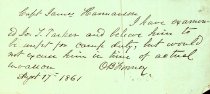 Capt James Hannauer
I have examin
ed Jas. T. Parker and believe him to
be unfit for camp duty, but would
not excuse him in time of actual
invasion
Sept 17th 1861